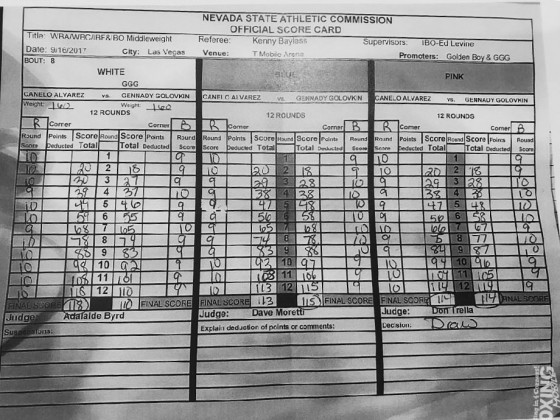 NEVADA STATE ATHLETIC COMMISSION
OFFICIAL SCORE CARD
Title: WBA/WBC/IBF&IBO Middleweight Referee: Kenny Bayless Supervisors: IBO-Ed Levine
Date: 9/16/2017 City: Las Vegas Venue: T Mobile Arena Promoters: Golden Boy & GGG
BOUT: 8
WHITE BLUE PINK
GGG
CANELO ALVAREZ vs. GENNADY GOLOVKIN CANELO ALVAREZ vs. GENNADY GOLOVKIN CANELO ALVAREZ vs. GENNADY GOLOVKIN
Weight: 160 Weight: 160
12 ROUNDS 12 ROUNDS 12 ROUNDS
R Corner Corner B R Corner Corner B R Corner Corner B
Round Points Score Round Score Points Round Round Points Score Round Score Points Round Round Points Score Round Score Points Round
Score Deducted Total Total Deducted Score Score Deducted Total Total Deducted Score Score Deducted Total Total Deducted Score
10 1 9 10 1 9 10 1 9
10 20 2 18 9 10 20 2 18 9 10 20 2 18 9
30 3 27 9 9 29 3 28 10 9 29 3 28 10
9 39 4 37 10 9 38 4 38 10 9 38 4 38 10
10 5 46 9 9 47 5 48 10 9 47 5 48 10
10 59 6 55 9 9 56 6 58 10 9 56 6 58 10
9 68 7 65 10 9 65 7 68 10 10 66 7 67 9
10 78 8 74 9 9 74 8 78 10 9 8 77 10
10 88 9 83 9 9 83 9 88 10 9 84 9 87 10
10 98 10 92 9 10 93 10 97 9 10 94 10 96 9
10 108 11 101 9 10 103 11 106 9 10 104 11 105 9
10 118 12 110 9 10 113 12 115 9 10 114 12 114 9
FINAL SCORE 118 110 FINAL SCORE 113 115 FINAL SCORE 114 114 FINAL SCORE
Judge: Adalaide Byrd Judge: Dave Moretti Judge: Don Trella
Explain deduction of points or comments: Decision: Draw